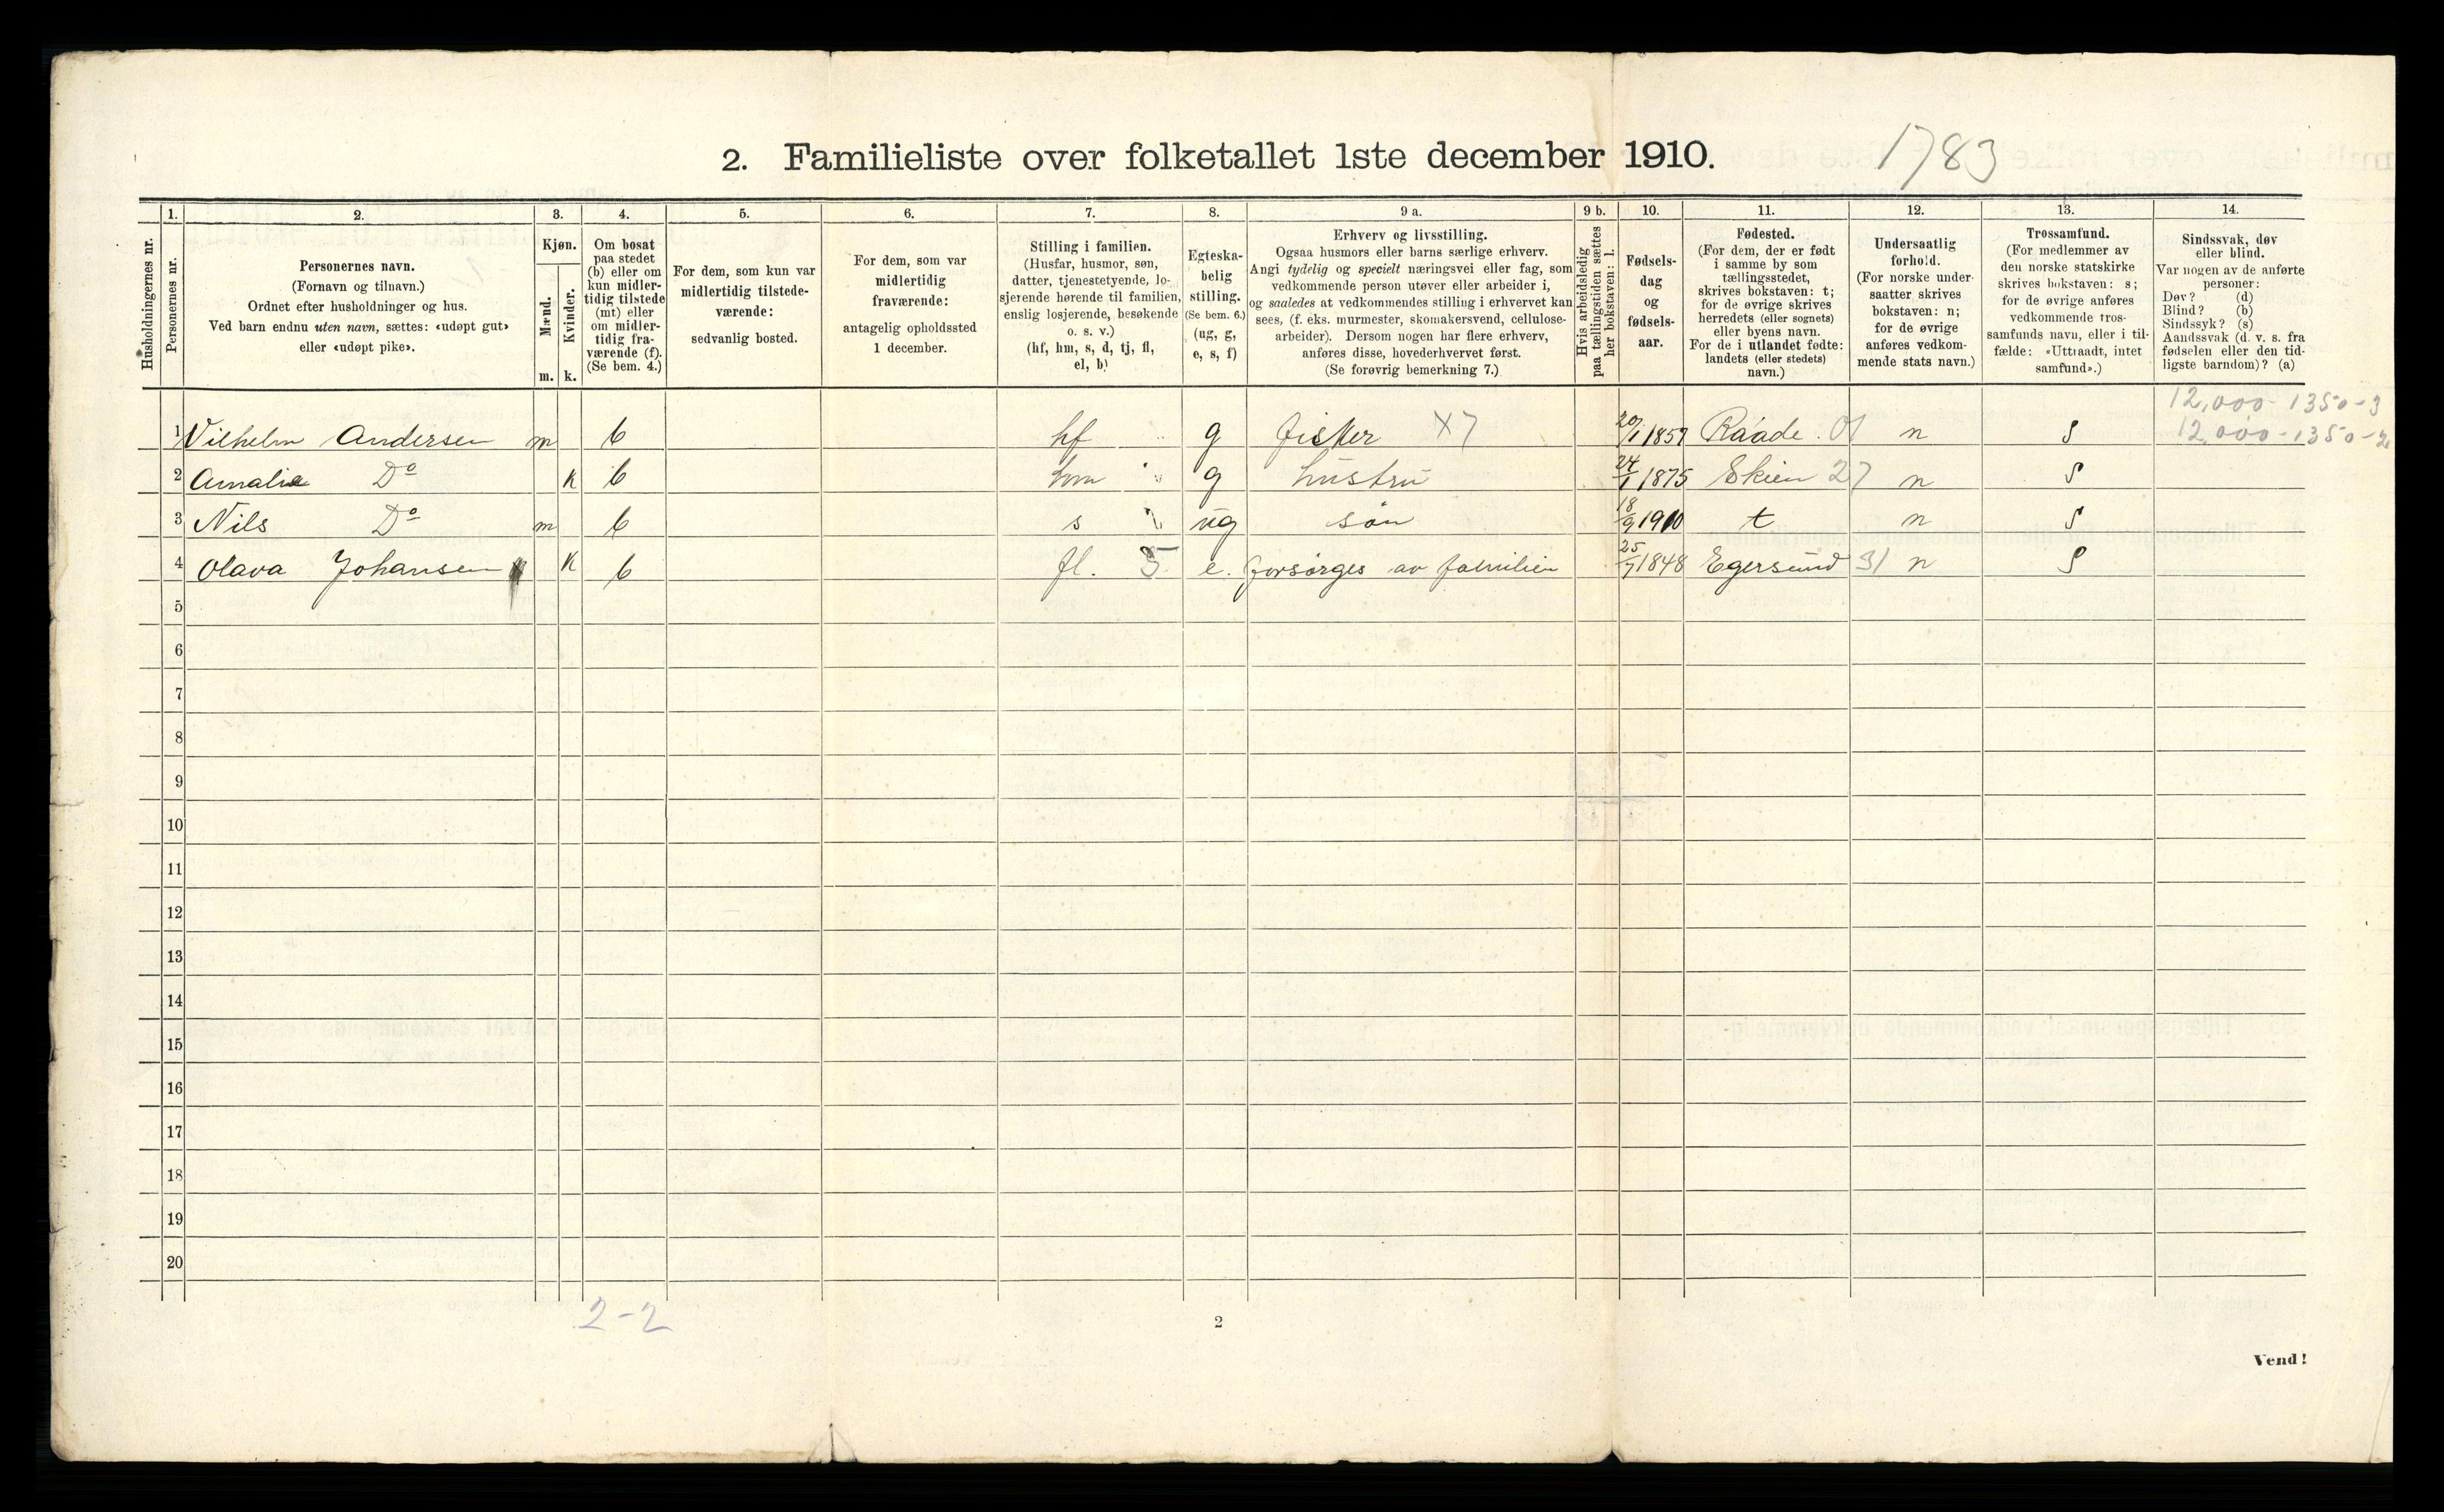 2. Familieliste over folketallet 1ste december 1910. 1783
Husholdningernes nr.
1.
Personernes nr.
2.
Personernes navn.
(Fornavn og tilnavn.)
Ordnet efter husholdninger og hus.
Ved barn endnu uten navn, sættes: «udøpt gut»
eller «udøpt pike».
3.
Kjøn.
Mænd.
Kvinder.
m. k.
4.
Om bosat
paa stedet
(b) eller om
kun midler-
tidig tilstede
(mt) eller
om midler-
tidig fra-
værende (f).
(Se bem. 4.)
5.
For dem, som kun var
midlertidig tilstede-
værende:
sedvanlig bosted.
6.
For dem, som var
midlertidig
fraværende:
antagelig opholdssted
1 december.
7.
Stilling i familien.
(Husfar, husmor, søn,
datter, tjenestetyende, lo-
sjerende hørende til familien,
enslig losjerende, besøkende
o. s. v.)
(hf, hm, s, d, tj, fl,
el, b)
8.
Egteska-
belig
stilling.
(Se bem. 6.)
(ug, g,
e, s, f)
9 a.
Erhverv og livsstilling.
Ogsaa husmors eller barns særlige erhverv.
Angi tydelig og specielt næringsvei eller fag, som
vedkommende person utøver eller arbeider i,
og saaledes at vedkommendes stilling i erhvervet kan
sees, (f. eks. murmester, skomakersvend, cellulose-
arbeider). Dersom nogen har flere erhverv,
anføres disse, hovederhvervet først.
(Se forøvrig bemerkning 7.)
9 b.
Hvis arbeidsledig
paa tællingstiden sættes
her bokstaven: l.
10.
Fødsels-
dag
og
fødsels-
aar.
11.
Fødested.
(For dem, der er født
i samme by som
tællingsstedet,
skrives bokstaven: t;
for de øvrige skrives
herredets (eller sognets)
eller byens navn.
For de i utlandet fødte:
landets (eller stedets)
navn.)
12.
Undersaatlig
forhold.
(For norske under-
saatter skrives
bokstaven: n;
for de øvrige
anføres vedkom-
mende stats navn.)
13.
Trossamfund.
(For medlemmer av
den norske statskirke
skrives bokstaven: s;
for de øvrige anføres
vedkommende tros-
samfunds navn, eller i til-
fælde: «Uttraadt, intet
samfund».)
14.
Sindssvak, døv
eller blind.
Var nogen av de anførte
personer:
Døv? (d)
Blind? (b)
Sindssyk? (s)
Aandssvak (d. v. s. fra
fødselen eller den tid-
ligste barndom)? (a)
12,000-1350-3
1 Vilhelm Andersen m b hf g fisker X7 20/1 1857 Raade. 01 n s 12,000-1350-2
2 Amalie Do k b hm g hustru 24/1 1875 Skien 27 n s
3 Nils Do m b s ug søn 18/9 1910 t n s
4 Olava Johansen k b fl. 5 e. forsørges av familien 25/7 1848 Egersund 31 n s
5
6
7
8
9
10
11
12
13
14
15
16
17
18
19
20
2-2
2
Vend!